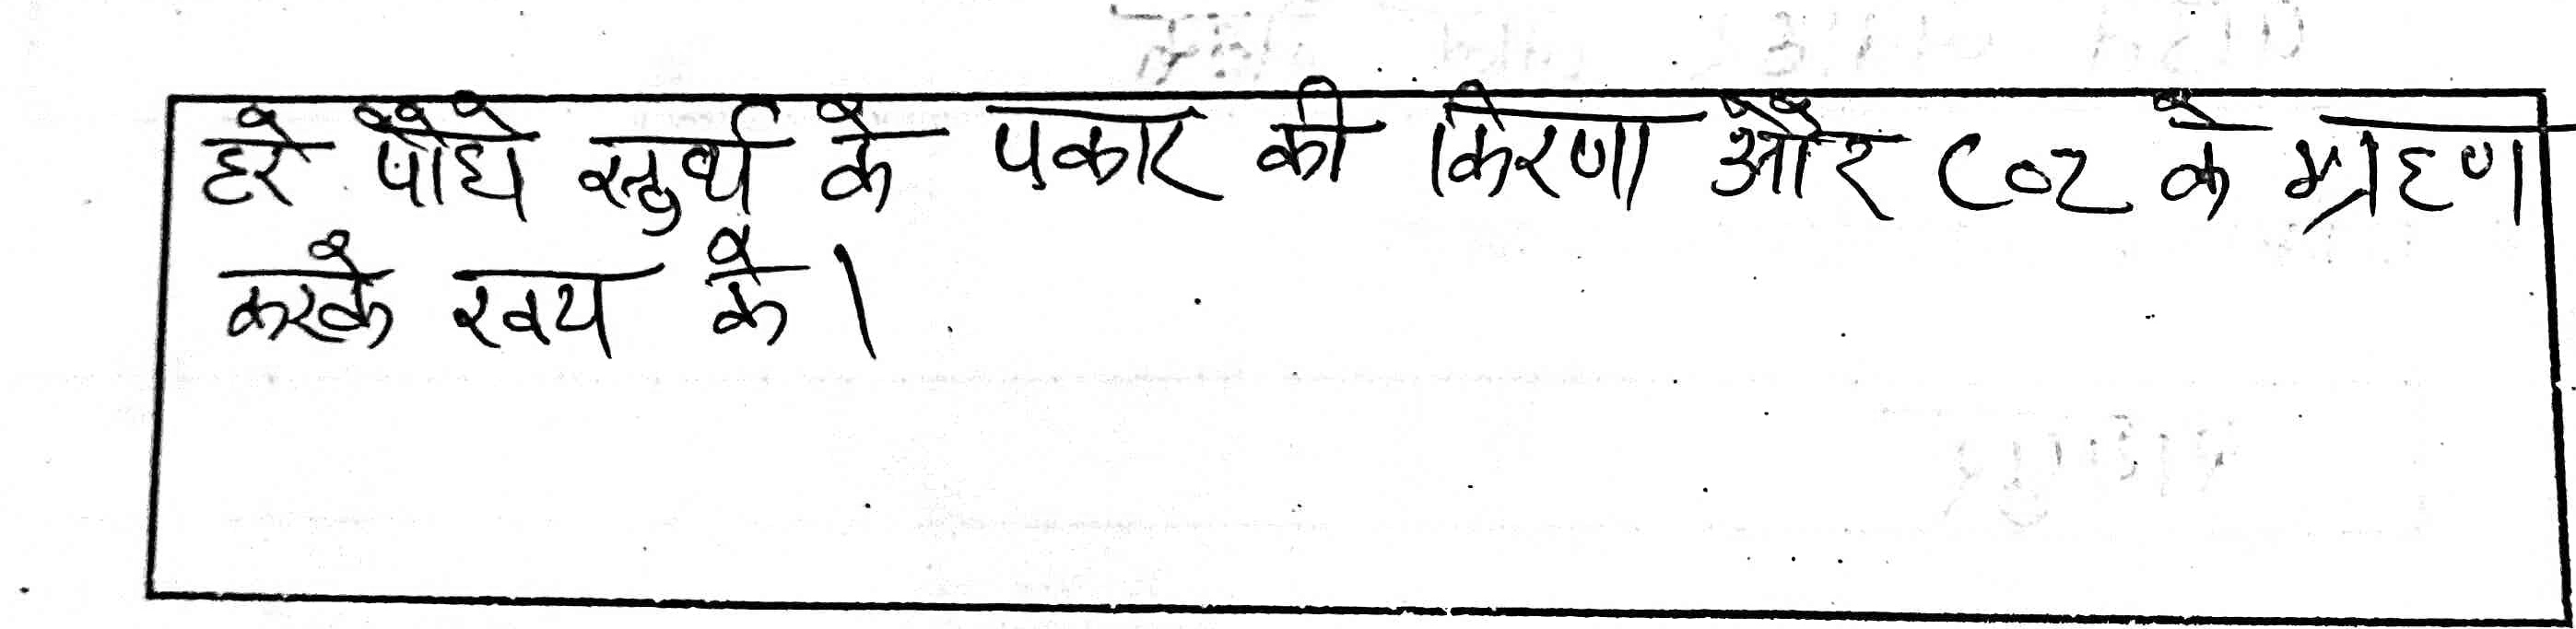 हरे पौधे सुर्य के पकार की किरणा और CO2 के ग्रहण
करके स्वय के।